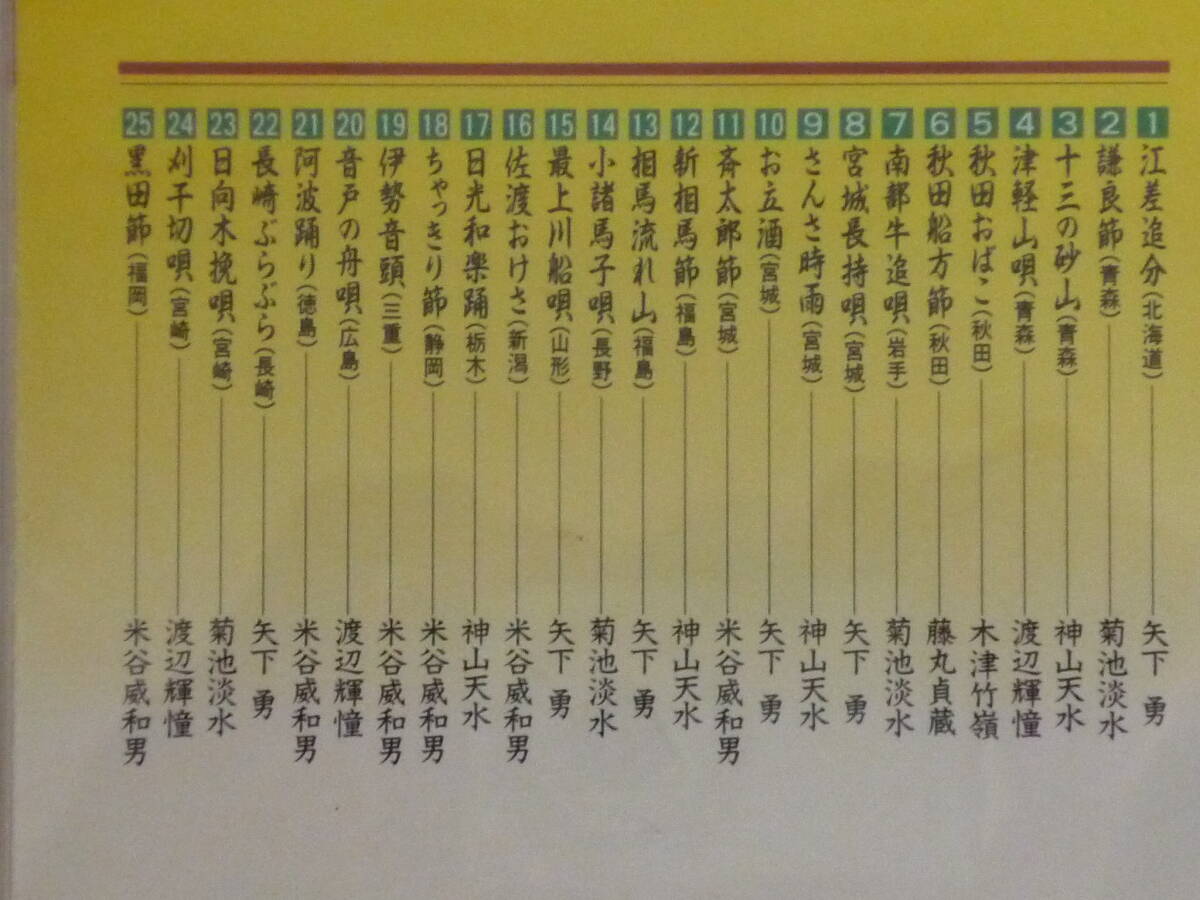 1 江差追分(北海道) 矢下 勇
2 謙良節(青森) 菊池淡水
3 十三の砂山(青森) 神山天水
4 津軽山唄(青森) 渡辺輝憧
5 秋田おばこ(秋田) 木津竹嶺
6 秋田船方節(秋田) 藤丸貞蔵
7 南部牛追唄(岩手) 菊池淡水
8 宮城長持唄(宮城) 矢下 勇
9 さんさ時雨(宮城) 神山天水
10 お立酒(宮城) 矢下 勇
11 斉太郎節(宮城) 米谷威和男
12 新相馬節(福島) 神山天水
13 相馬流れ山(福島) 矢下 勇
14 小諸馬子唄(長野) 菊池淡水
15 最上川船唄(山形) 矢下 勇
16 佐渡おけさ(新潟) 米谷威和男
17 日光和楽踊(栃木) 神山天水
18 ちゃっきり節(静岡) 米谷威和男
19 伊勢音頭(三重) 米谷威和男
20 音戸の舟唄(広島) 渡辺輝憧
21 阿波踊り(徳島) 米谷威和男
22 長崎ぶらぶら(長崎) 矢下 勇
23 日向木挽唄(宮崎) 菊池淡水
24 刈干切唄(宮崎) 渡辺輝憧
25 黒田節(福岡) 米谷威和男